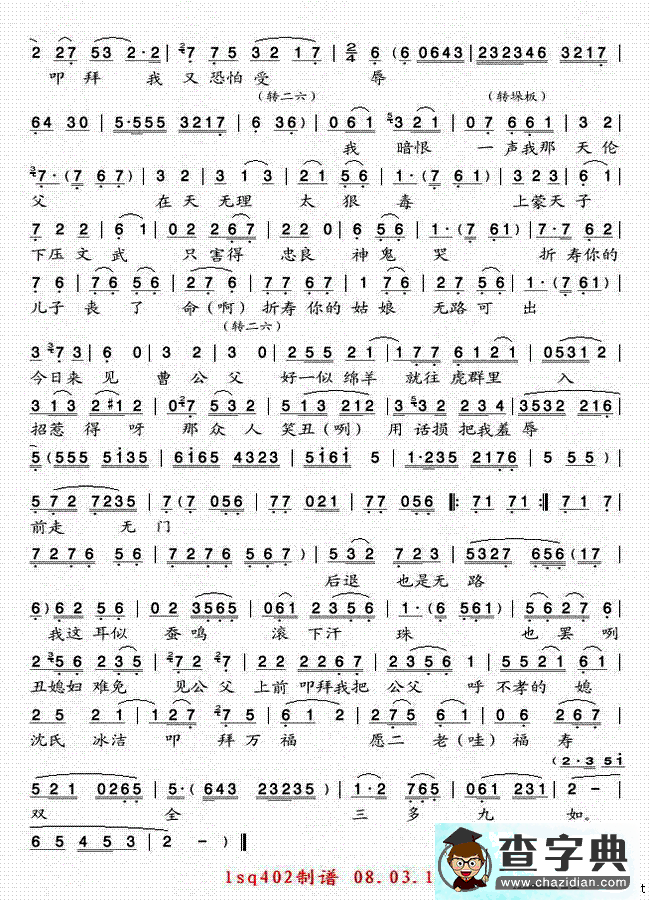 2 27 53 2·2 | 7 75 32 17 | 2/4 6 (6 0643 | 232346 3217 |
叩拜 我 又 恐怕 受 辱
(转二六) (转垛板)
64 30 | 5·555 3217 | 6 36) | 0 6 1 | 3 2 1 | 07 661 | 3 2 |
我 暗恨 一声我那 天伦
7·(7 67) | 3 2 | 3 2 2 3 | 21 56 | 1·(7 61) | 2 3 2 3 |
父 在天 无理 太 狠 毒 上蒙天子
7 2 2 | 6 1 | 02 267 | 2 2 0 | 6 56 | 1·(7 61) | 7·7 62 |
下压 文 武 只 害得 忠良 神鬼 哭 折 寿你的
7 6 | 76 56 | 276 | 77 67 | 1 76 | 27 56 | 1·(7 61) |
儿子 丧 了 命(啊) 折寿 你的 姑 娘 无路 可 出
(转二六)
3 73 | 6 0 | 3 2 | 3 0 | 255 21 | 177 6121 | 05312 |
今日来 见 曹 公 父 好一似 绵羊 就往 虎群里 入
313 2#12 | 027 532 | 513 212 | 3 32 234 | 3532 216 |
招惹 得 呀 那 众 人 笑丑(咧) 用 话损 把我 羞 辱
5 (555 5135 | 6165 4323 | 5161 5 | 1·235 2176 | 5 5 5 ) |
572 7235 | 7 (7 056 | 77 021 | 77 056 |: 71 71 :| 7 1 7 |
前走 无 门
7276 56 | 7276 567 ) | 532 723 | 5327 656 (17 |
后退 也是 无 路
6) 62 56 | 02 3565 | 061 2356 | 1·(6 561) | 5627 6 |
我这 耳似 蚕鸣 滚 下汗 珠 也 罢 咧
2 56 235 | 2 72 | 22 2267 | 2356 1 | 5521 61 |
丑媳妇 难免 见公 父 上前 叩拜我把 公父 呼 不孝的 媳
25 21 | 127 75 | 61 2 | 275 61 | 02 267 |
沈氏 冰洁 叩 拜万 福 愿二 老(哇) 福 寿
(2·3 51
521 0265 | 5·(643 23235) | 1·2 765 | 061 231 | 2 - |
双 全 三 多 九 如。
65 453 | 2 - ) ‖
lsq402制谱 08.03.1
查字典
www.chazidian.com
t